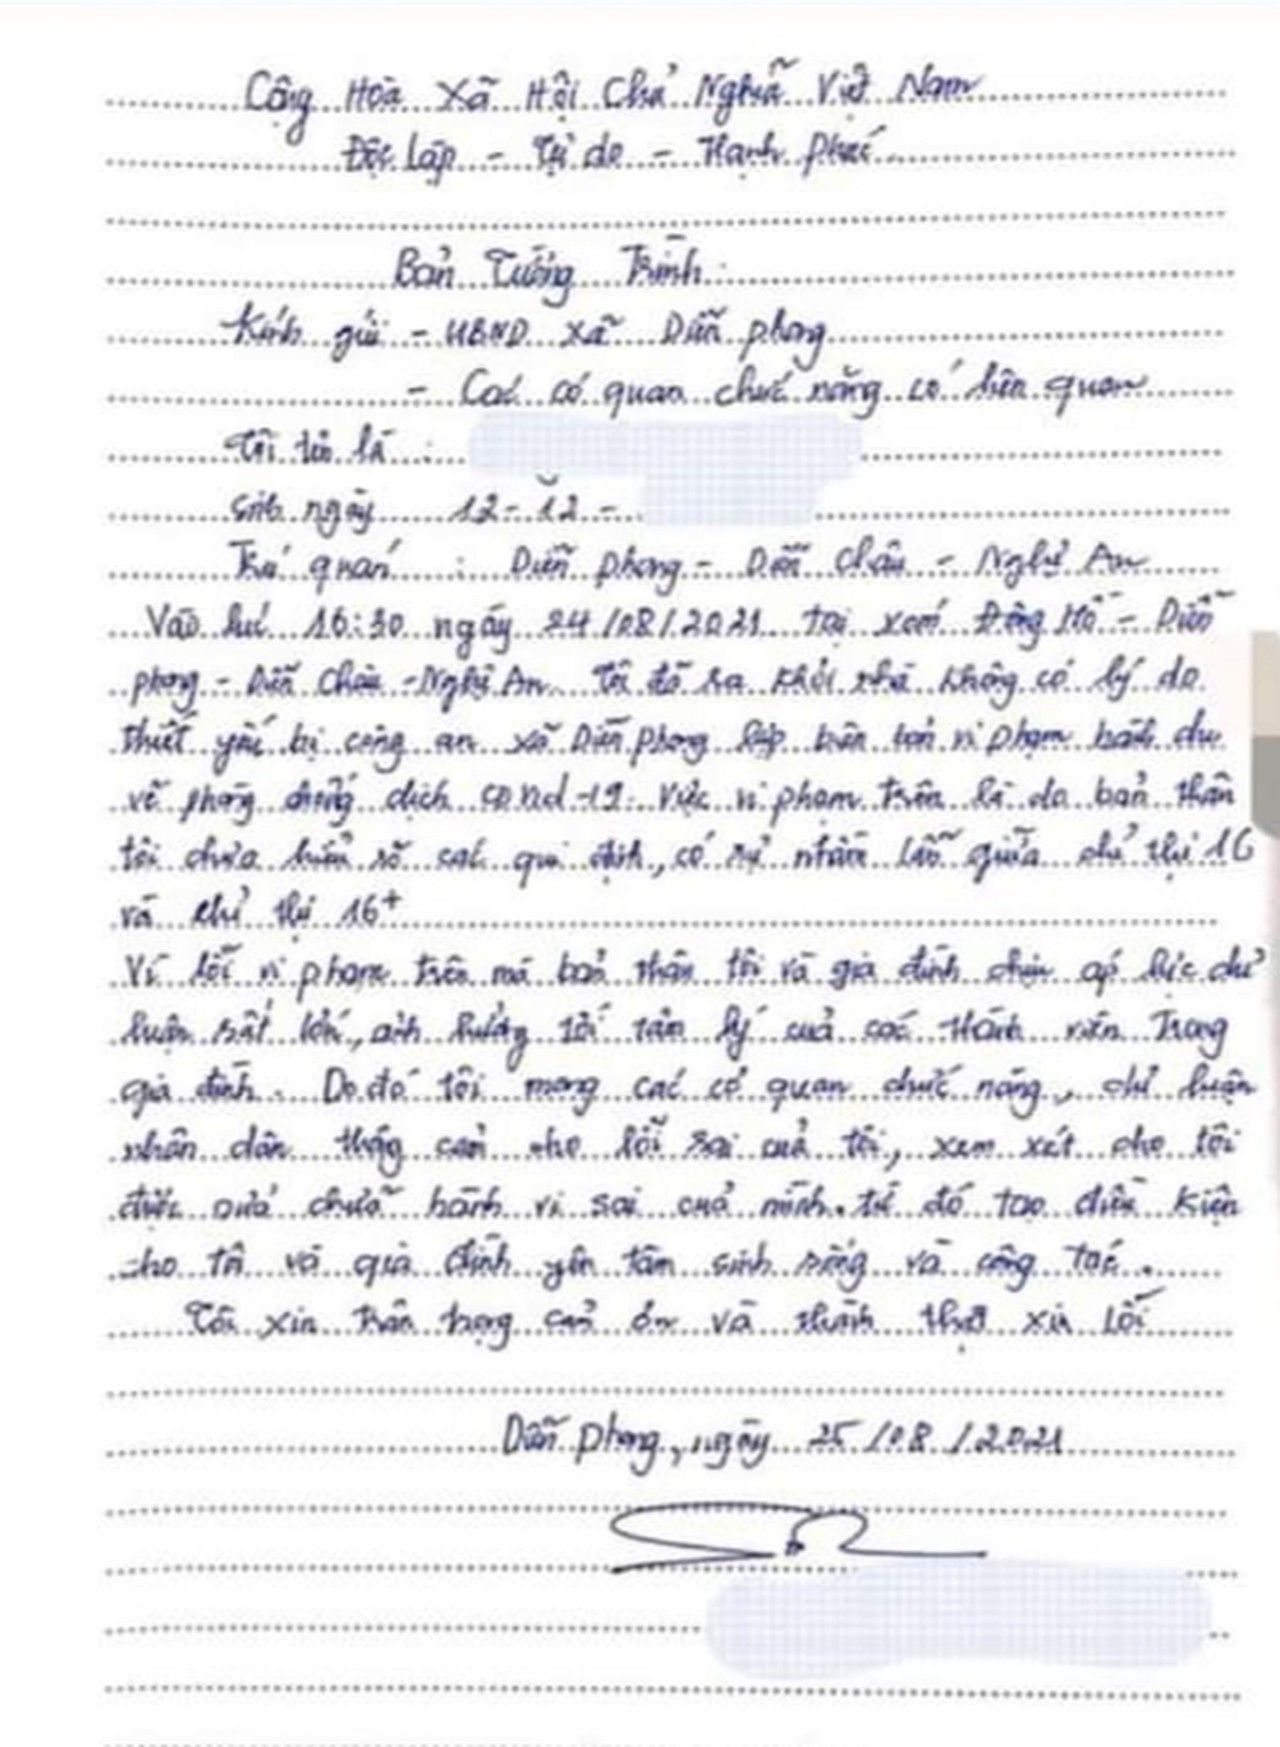 Cộng Hoà Xã Hội Chủ Nghĩa Việt Nam
Độc lập - Tự do - Hạnh phúc
Bản Tường Trình
Kính gửi - UBND xã Diễn phong
- Các cơ quan chức năng có liên quan
Tôi tên là :
Sinh ngày 12-12-
Trú quán : Diễn phong - Diễn Châu - Nghệ An
Vào lúc 16:30 ngày 24/08/2021 tại xóm Đông Hồ - Diễn
phong - Diễn Châu - Nghệ An. Tôi đã ra khỏi nhà không có lý do
thiết yếu bị công an xã Diễn phong lập biên bản vi phạm hành chu
về phòng chống dịch covid-19. Việc vi phạm trên là do bản thân
tôi chưa hiểu rõ các qui định, có sự nhầm lẫn giữa chỉ thị 16
và chỉ thị 16+
Vì lỗi vi phạm trên mà bản thân tôi và gia đình chịu áp lực dư
luận rất lớn, ảnh hưởng tới tâm lý của các thành viên Trong
gia đình. Do đó tôi mong các cơ quan chức năng, dư luận
nhân dân thông cảm cho lỗi sai của tôi, xem xét cho tôi
được sửa chữa hành vi sai của mình. từ đó tạo điều kiện
cho tôi và gia đình yên tâm sinh sống và công tác.
Tôi xin trân trọng cảm ơn và thành thật xin lỗi
Diễn phong, ngày 25/08/2021